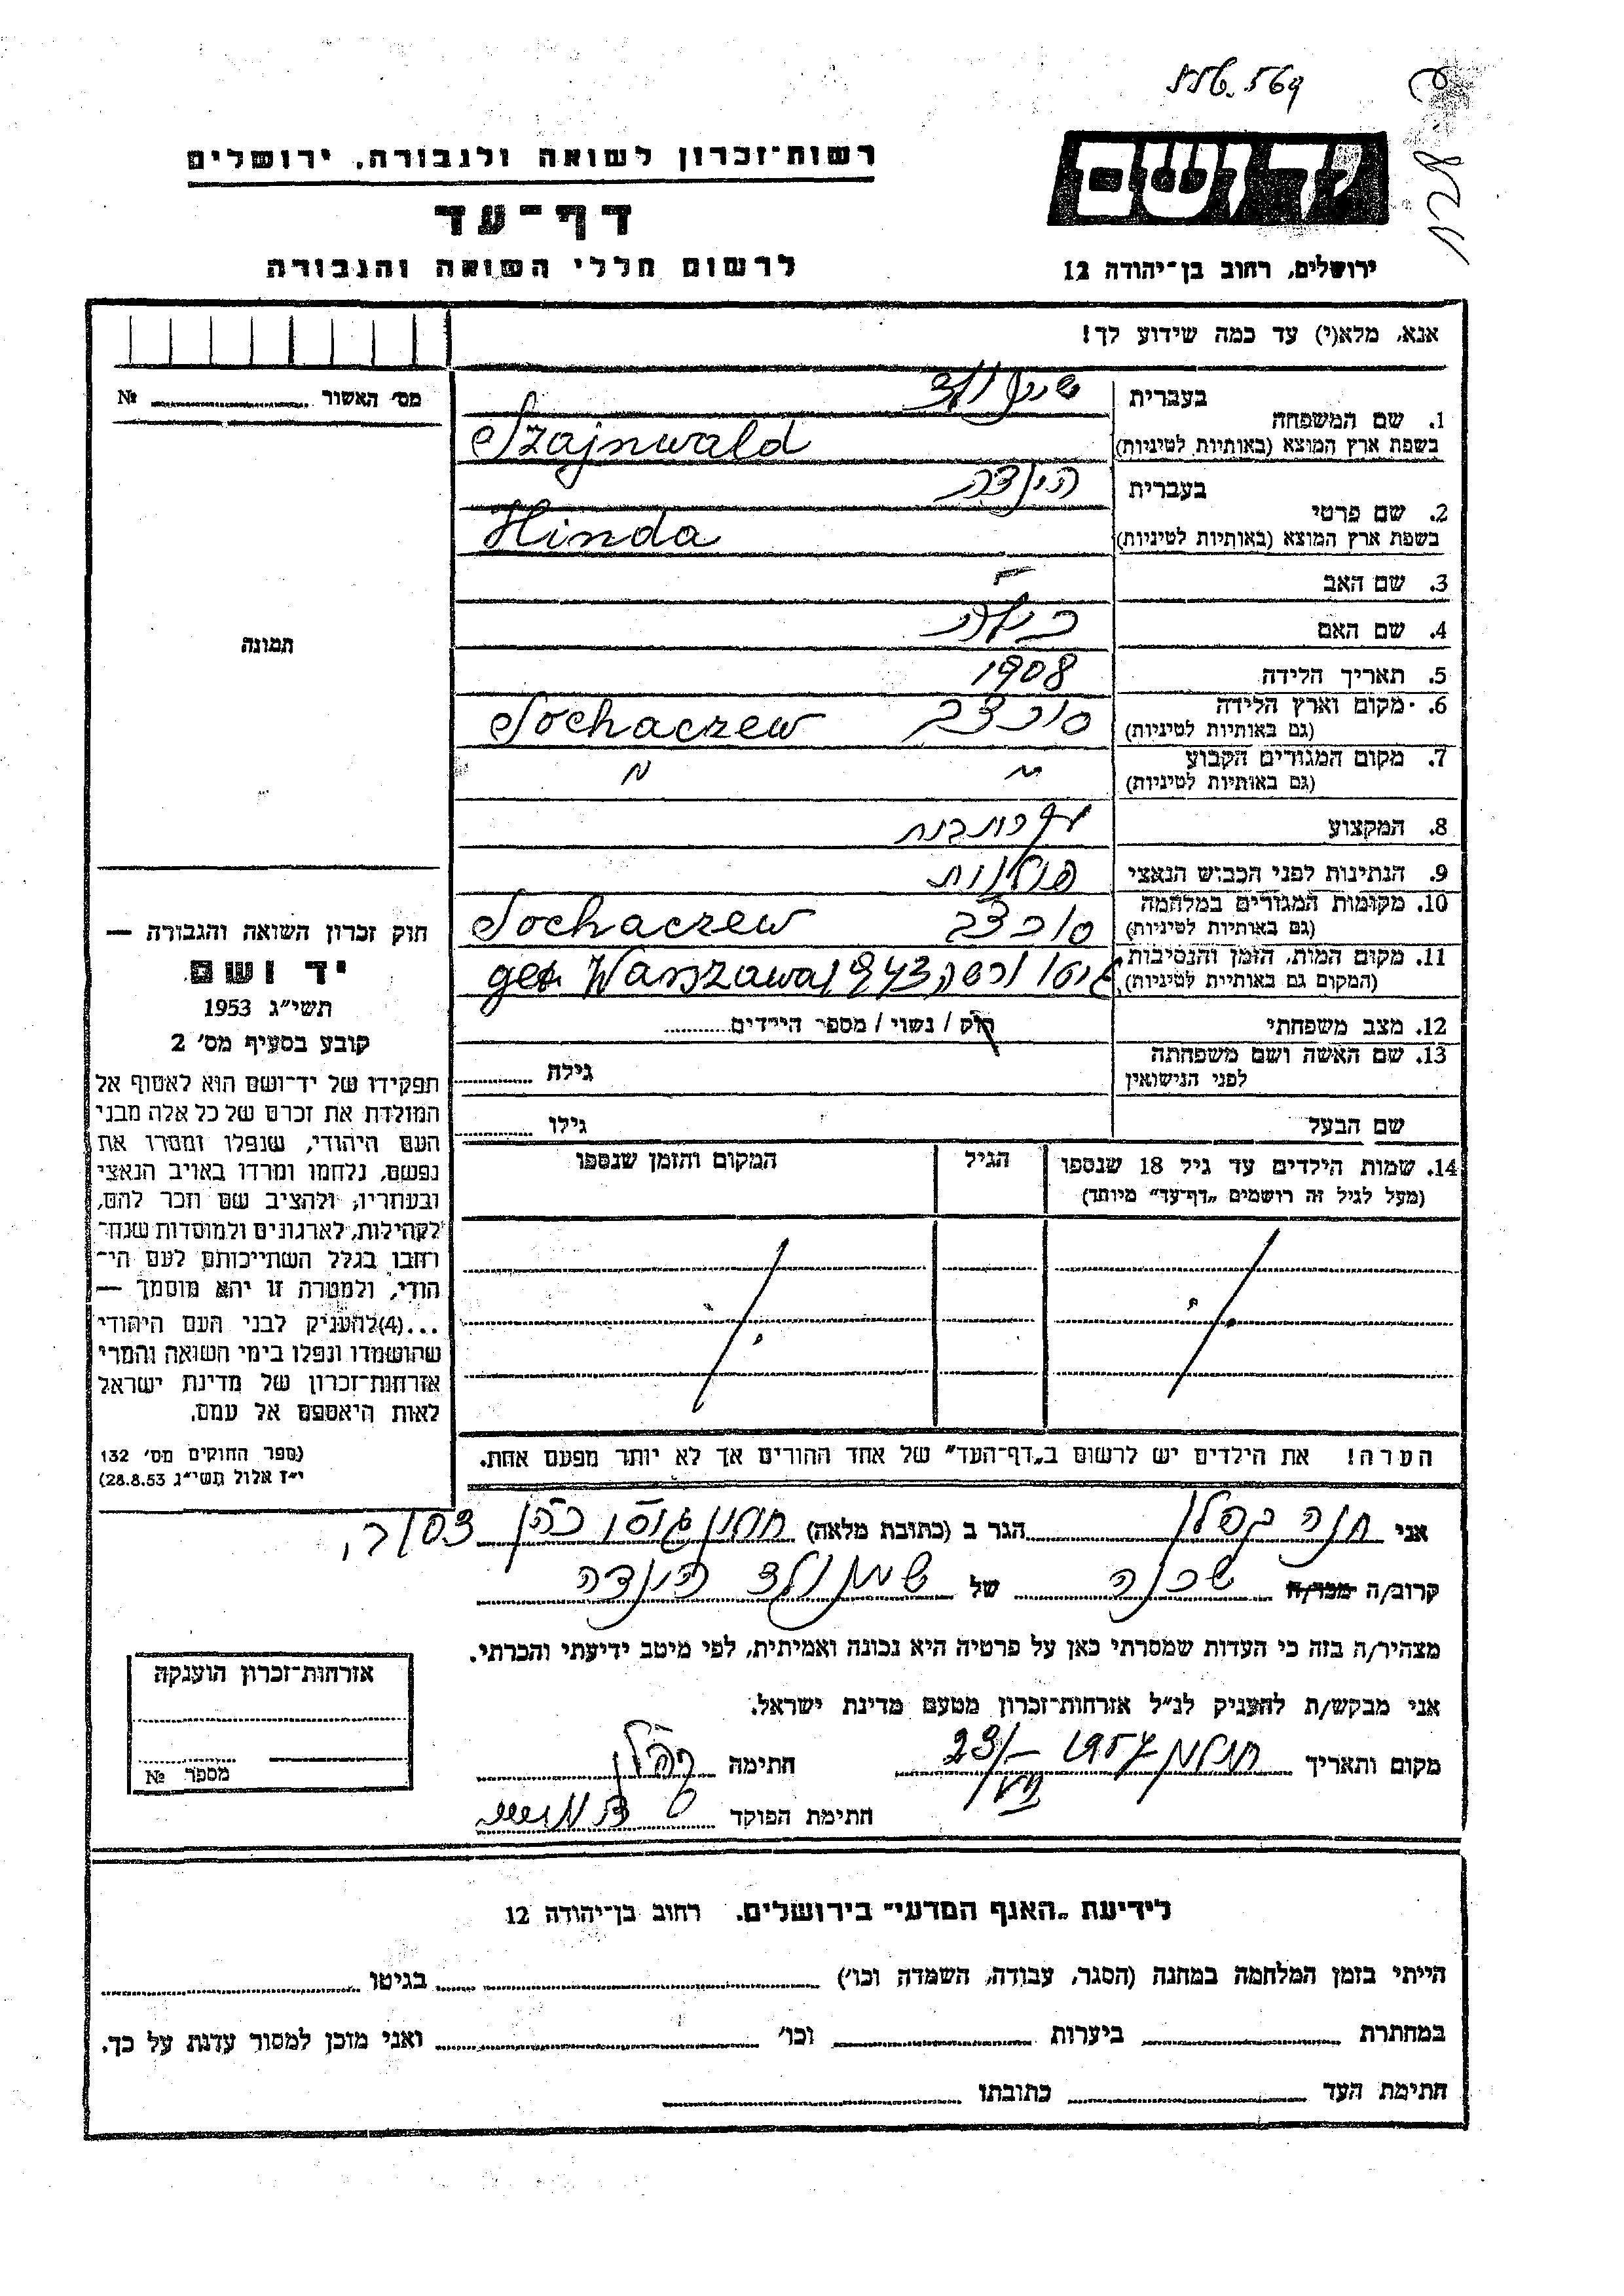 569
רשות־זכרון לשואה ולגבורה, ירושלים
יד ושם
דף־עד
לרשום חללי השואה והגבורה
ירושלים, רחוב בן־יהודה 12
אנא, מלא(י) עד כמה שידוע לך!
מס׳ האשור № 
1. שם המשפחה
בעברית
בשפת ארץ המוצא (באותיות לטיניות)
Szajnwald
2. שם פרטי
בעברית הינדה
בשפת ארץ המוצא (באותיות לטיניות)
Hinda
3. שם האב –
4. שם האם
5. תאריך הלידה 1908
6. מקום וארץ הלידה
(גם באותיות לטיניות)
Sochaczew
7. מקום המגורים הקבוע
(גם באותיות לטיניות)
〃 〃
8. המקצוע
9. הנתינות לפני הכבוש הנאצי פולנית
10. מקומות המגורים במלחמה
(גם באותיות לטיניות)
Sochaczew
11. מקום המות, הזמן והנסיבות
(המקום גם באותיות לטיניות)
גיטו ורשה, 1943 get. Warszawa
12. מצב משפחתי רוק / נשוי / מספר הילדים
13. שם האשה ושם משפחתה
לפני הנישואין
גילה
שם הבעל גילו
14. שמות הילדים עד גיל 18 שנספו
(מעל לגיל זה רושמים „דף־עד״ מיוחד)
הגיל
המקום והזמן שנספו
הערה! את הילדים יש לרשום ב„דף־העד״ של אחד ההורים אך לא יותר מפעם אחת.
תמונה
חוק זכרון השואה והגבורה —
יד ושם
תשי״ג 1953
קובע בסעיף מס׳ 2
תפקידו של יד־ושם הוא לאסוף אל
המולדת את זכרם של כל אלה מבני
העם היהודי, שנפלו ומסרו את
נפשם, נלחמו ומרדו באויב הנאצי
ובעוזריו, ולהציב שם וזכר להם,
לקהילות, לארגונים ולמוסדות שנח־
רבו בגלל השתייכותם לעם הי־
הודי, ולמטרה זו יהא מוסמך —
...(4)להעניק לבני העם היהודי
שהושמדו ונפלו בימי השואה והמרי
אזרחות־זכרון של מדינת ישראל
לאות היאספם אל עמם.
(ספר החוקים מס׳ 132
י״ז אלול תשי״ג 28.8.53)
אני חנה קפלן הגר ב (כתובת מלאה) חולון
קרוב/ה מכר/ה שכנה של הינדה
מצהיר/ה בזה כי העדות שמסרתי כאן על פרטיה היא נכונה ואמיתית, לפי מיטב ידיעתי והכרתי.
אני מבקש/ת להעניק לנ״ל אזרחות־זכרון מטעם מדינת ישראל.
מקום ותאריך חולון 1957 23/VII – חתימה קפלן
חתימת הפוקד
אזרחות־זכרון הוענקה
מספר №
לידיעת „האגף המדעי״ בירושלים. רחוב בן־יהודה 12
הייתי בזמן המלחמה במחנה (הסגר, עבודה, השמדה וכו׳) בגיטו
במחתרת ביערות וכו׳ ואני מוכן למסור עדות על כך.
חתימת העד כתובתו